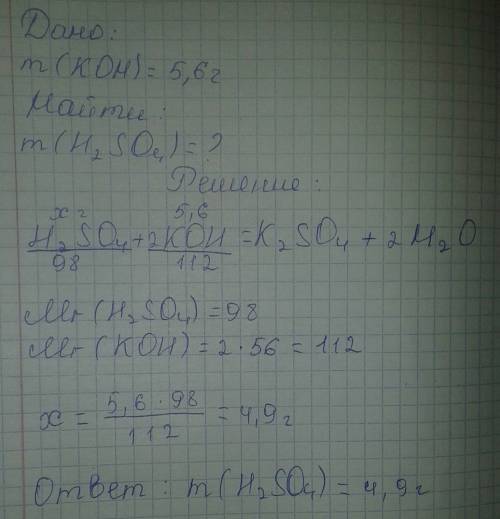 Дано:
m(KOH) = 5,6г
Найти:
m(H₂SO₄) = ?
Решение:
x г 5,6
H₂SO₄ + 2KOH = K₂SO₄ + 2H₂O
98 112
Mr(H₂SO₄) = 98
Mr(KOH) = 2·56 = 112
x = 5,6·98 / 112 = 4,9г
Ответ: m(H₂SO₄) = 4,9г